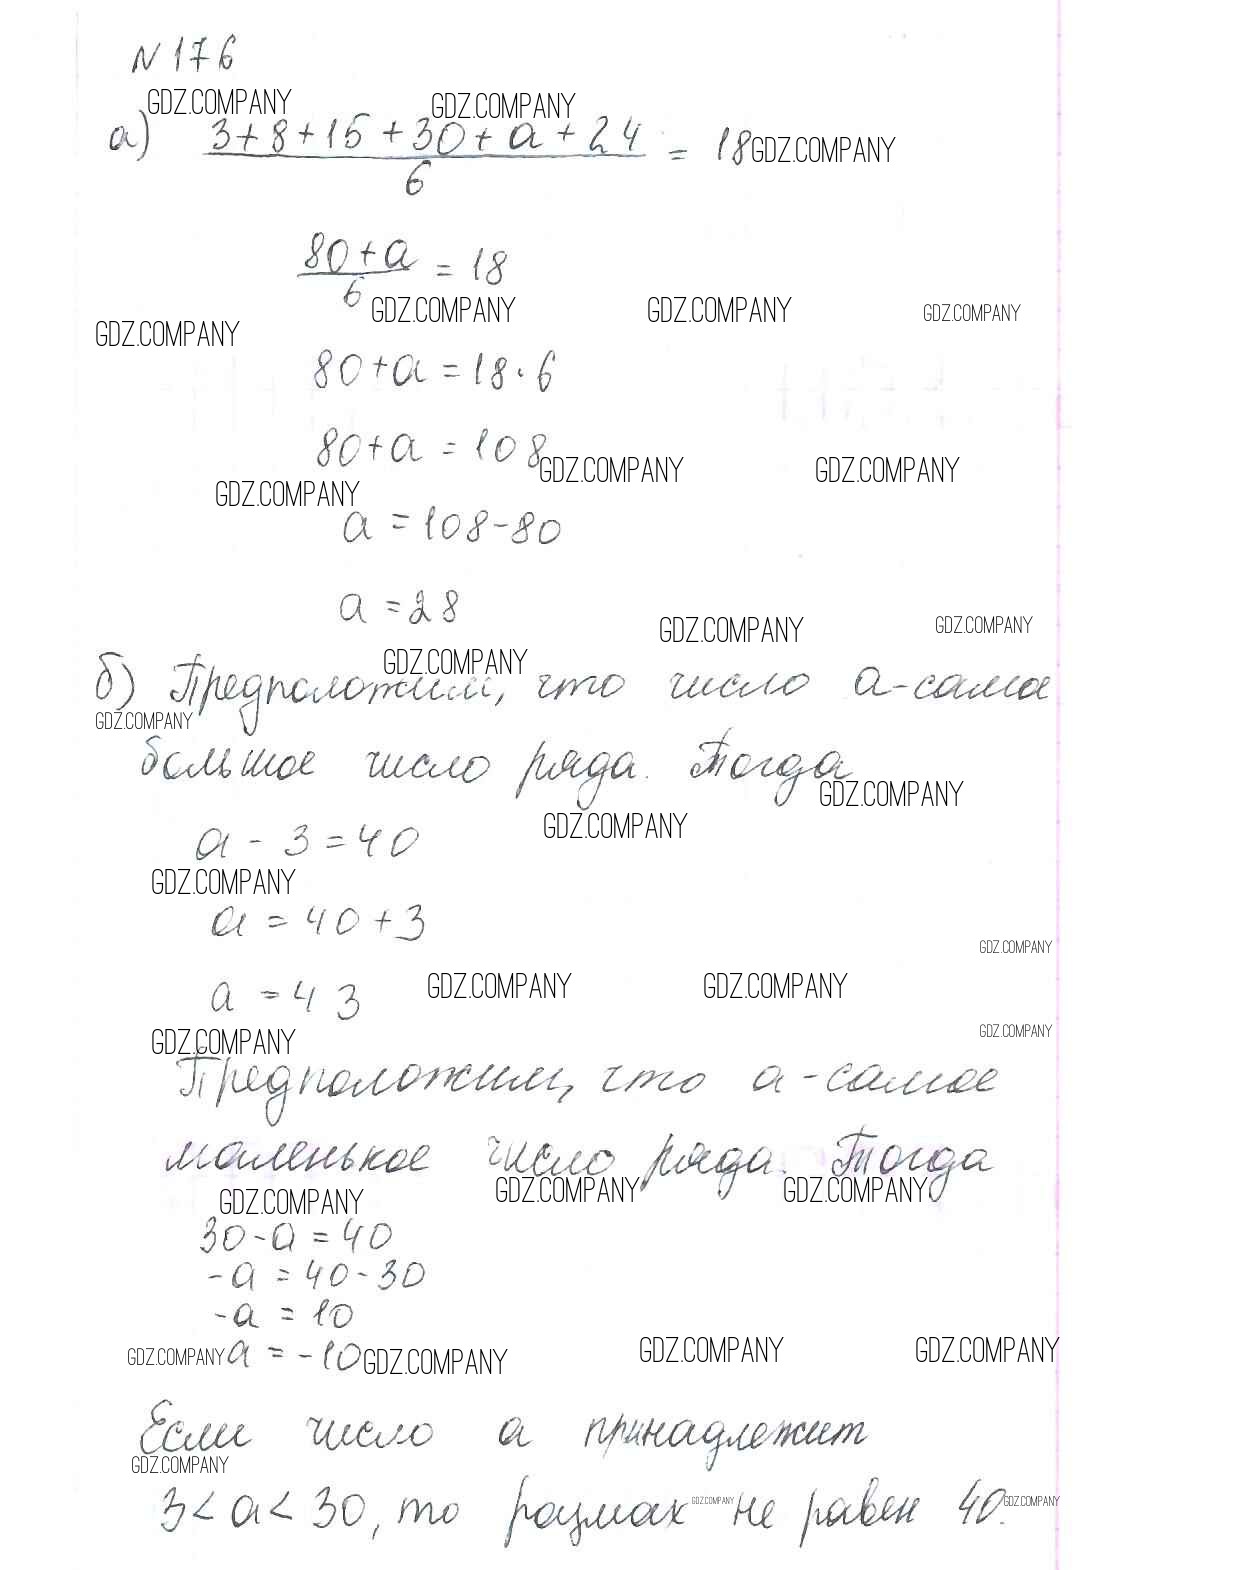 N 176
GDZ.COMPANY GDZ.COMPANY
а) 3+8+15+30+a+24 = 18 GDZ.COMPANY
6
80+a = 18
6
GDZ.COMPANY GDZ.COMPANY GDZ.COMPANY GDZ.COMPANY
80+a=18·6
80+a=108
GDZ.COMPANY GDZ.COMPANY GDZ.COMPANY
a=108-80
a=28
GDZ.COMPANY GDZ.COMPANY
GDZ.COMPANY
б) Предположим, что число a-самое
GDZ.COMPANY
большое число ряда. Тогда
GDZ.COMPANY
GDZ.COMPANY
a-3=40
GDZ.COMPANY
a=40+3
GDZ.COMPANY
a=43 GDZ.COMPANY GDZ.COMPANY
GDZ.COMPANY GDZ.COMPANY
Предположим, что a-самое
маленькое число ряда. Тогда
GDZ.COMPANY GDZ.COMPANY GDZ.COMPANY
30-a=40
-a=40-30
-a=10
GDZ.COMPANY a=-10 GDZ.COMPANY GDZ.COMPANY GDZ.COMPANY
Если число a принадлежит
GDZ.COMPANY
3<a<30, то размах GDZ.COMPANY не равен 40. GDZ.COMPANY